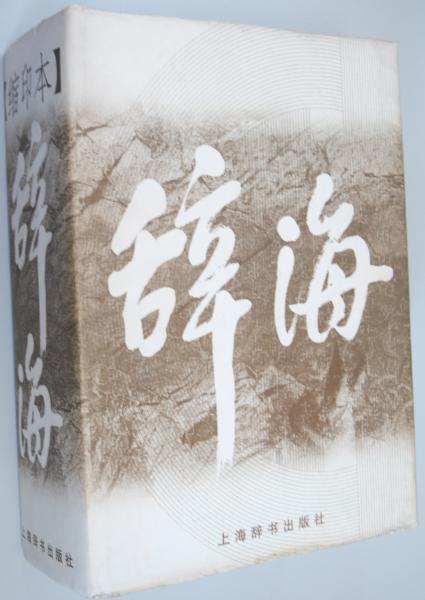 【缩印本】
辞海
上海辞书出版社
辞海
上海辞书出版社